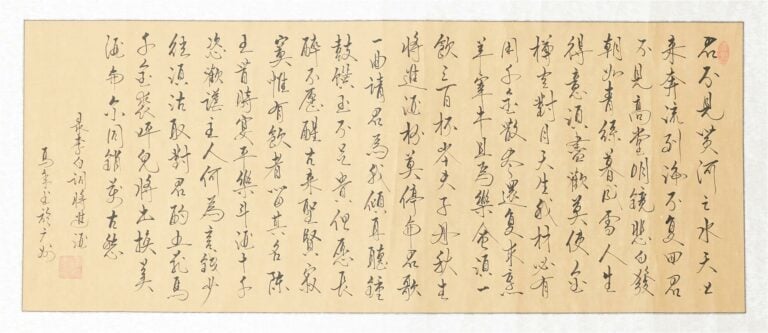 君不見黃河之水天上
来奔流到海不复回君
不見高堂明鏡悲白發
朝如青絲暮成雪人生
得意須盡歡莫使金
樽空對月天生我材必有
用千金散盡還复来烹
羊宰牛且為樂會須一
飲三百杯岑夫子丹秋生
將進酒杯莫停与君歌
一曲請君為我傾耳聽鐘
鼓饌玉不足貴但愿長
醉不愿醒古来聖賢寂
寞惟有飲者留其名陳
王昔時宴平樂斗酒十千
恣歡謔主人何為言錢少
徑須沽取對君酌五花馬
千金裘呼兒將出換美
酒与尔同銷萬古愁
录李白詞將進酒
書於广州